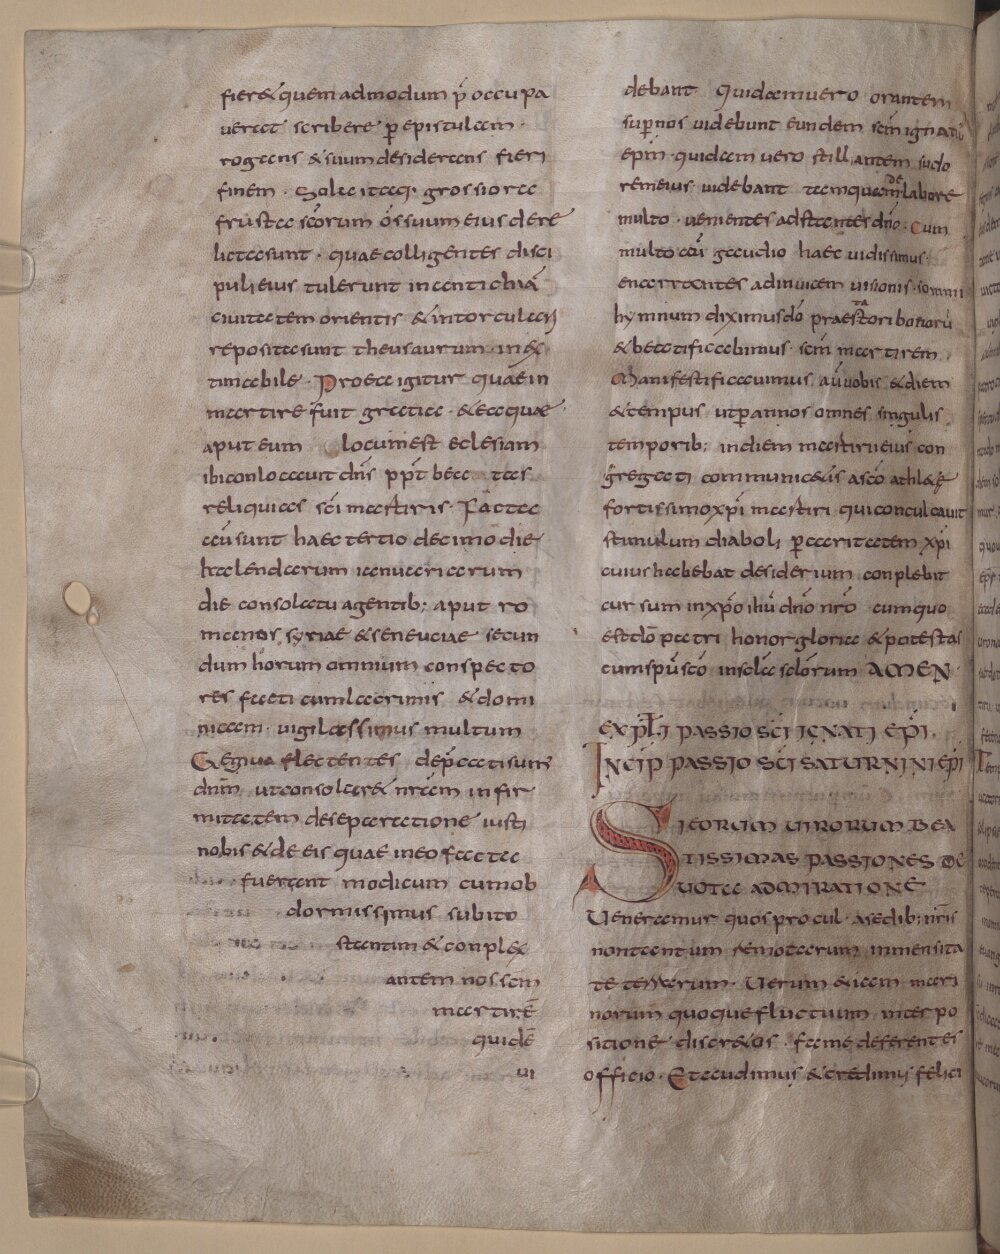 fier&quem admodum p̄ occupa
uerat scribere p̲ epistulam ·
rogans & suum desiderans fieri
finem · Sola itaq; grossiora
frusta sc̄orum ossuum eius dere
licta sunt · quae colligentes disci
puli eius tulerunt in antichiā
ciuitatem orientis & in torculari
reposita sunt theusaurum inex
timabile · Pro ea igitur quae in
martire fuit gratia · & ea quae
aput eum locum est eclesiam
ibi conlocauit dn̄s pp̄t bea tas
reliquias sc̄i martiris · Facta
aū sunt haec tertio decimo die
kalendarum ianuariarum
die consolatu agentib; aput ro
manos syriae & seneuciae secun
dum horum omnium conspecto
res facti cum lacrimis & domi
nicam · uigilassimus multum
Genua flectentes dep̄cati sum'
dn̄m ut consolar& nr̄am infir
mitatem de separatione iusti
nobis & de eis quae in eo facta
fuerant modicum cum ob
dormissimus subito
stantim & conplex
antem nos sc̄m
martirē
quidē
ui
debant Quidam uero orantem
sup̲ nos uidebunt eundem sc̄m ignatiū
ep̄m · quidam uero stillantem sudo
rem eius uidebant tamquam de labore
multo · uenientes adstantes dn̄o · Cum
multo aū gaudio haec uidissimus
enarrantes ad inuicem uisionis somnii
hymnum diximus dō praestatori bonorū
& beatificabimus sc̄m martirem
Manifestificauimus aū uobis & diem
& tempus ut p̲ annos omnes singulis
temporib; in diem martirii eius con
gregati communicetis a sc̄o athlete
fortissimo xp̄i martiri qui conculcauit
stimulum diaboli p̲caritatem xp̄i
cuius habebat desiderium conplebit
cursum in xp̄o ih̄u dn̄o nr̄o cum quo
est dō patri honor gloria & potestas
cum sp̄u sc̄o in scl̄a sclōrum AMEN
EXPLI PASSIO SC̄I IGNATI EP̄I ·
INCIP PASSIO SC̄I SATURNINI EP̄I
SI EORUM UIRORUM BEA
TISSIMAS PASSIONES DE
UOTA ADMIRATIONE
Ueneramur quos procul · a sedib; nr̄is
non tantum remotarum inmensita
te terrarum · Uerum etiam mari
norum quoque fluctuum inter po
sitione discretos · fama deferentes
officio · Et audimus & credimus felici